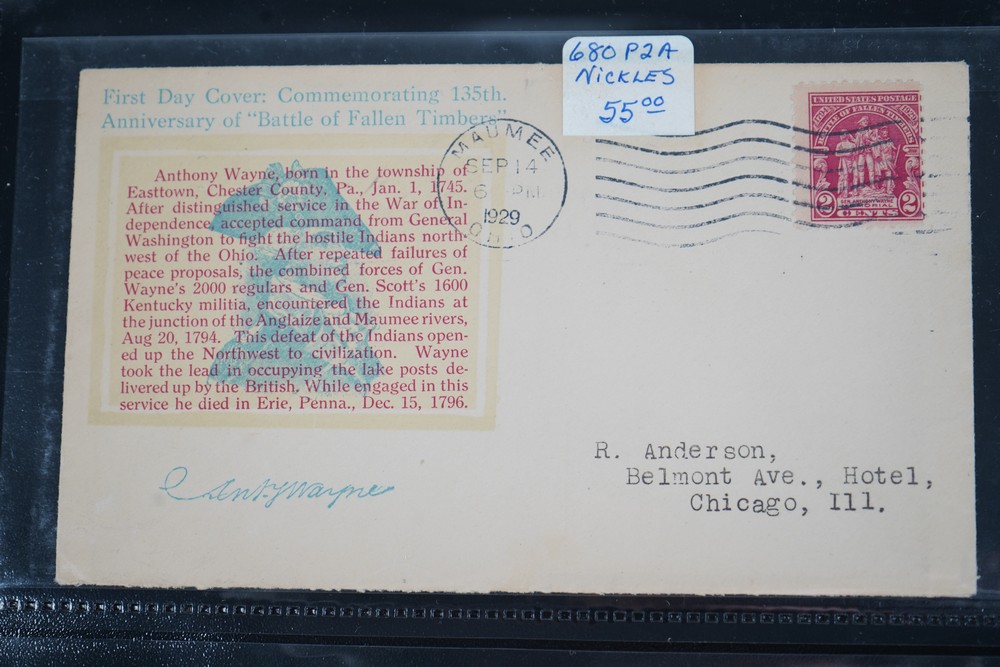 680 P2A
NICKLES
55.00
First Day Cover: Commemorating 135th.
Anniversary of "Battle of Fallen Timbers"
MAUMEE
SEP 14
6 PM
1929
OHIO
UNITED STATES POSTAGE
BATTLE OF FALLEN TIMBERS
GEN. ANTHONY WAYNE
MEMORIAL
2 CENTS 2
Anthony Wayne, born in the township of
Easttown, Chester County, Pa., Jan. 1, 1745.
After distinguished service in the War of In-
dependence, accepted command from General
Washington to fight the hostile Indians north-
west of the Ohio. After repeated failures of
peace proposals, the combined forces of Gen.
Wayne's 2000 regulars and Gen. Scott's 1600
Kentucky militia, encountered the Indians at
the junction of the Anglaize and Maumee rivers,
Aug 20, 1794. This defeat of the Indians open-
ed up the Northwest to civilization. Wayne
took the lead in occupying the lake posts de-
livered up by the British. While engaged in this
service he died in Erie, Penna., Dec. 15, 1796.
Anty Wayne
R. Anderson,
Belmont Ave., Hotel,
Chicago, Ill.